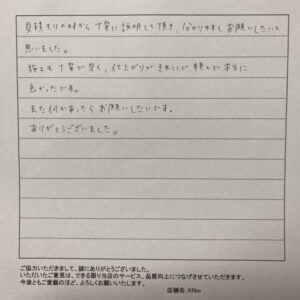 見積もりの時から丁寧に説明して頂き、分かりやすくお願いしたいと
思いました。
施工も丁寧で早く、仕上がりがきれいで頼んで本当に
良かったです。
また何かあったらお願いしたいです。
ありがとうございました。
ご協力いただきまして、誠にありがとうございました。
いただいたご意見は、できる限り当店のサービス、品質向上につなげさせていただきます。
今後ともご愛顧のほど、よろしくお願いいたします。
店舗名:Kfilm